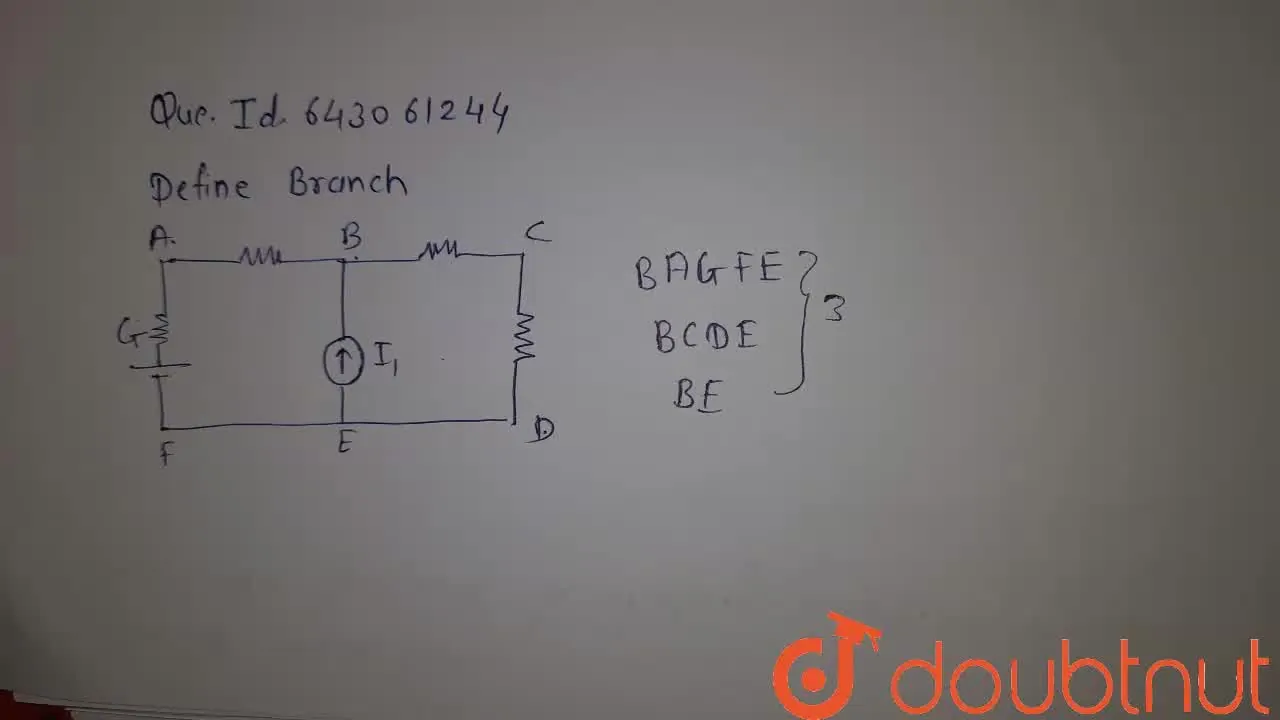 Que. Id. 643061244
Define Branch
A.
B
C
G
I1
F
E
D.
BAGFE
BCDE
BE
3
doubtnut